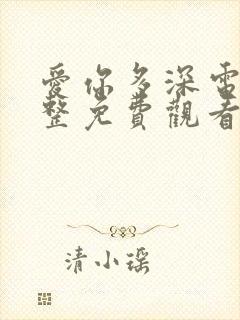 愛你多深電
整免費觀看
清小瑶